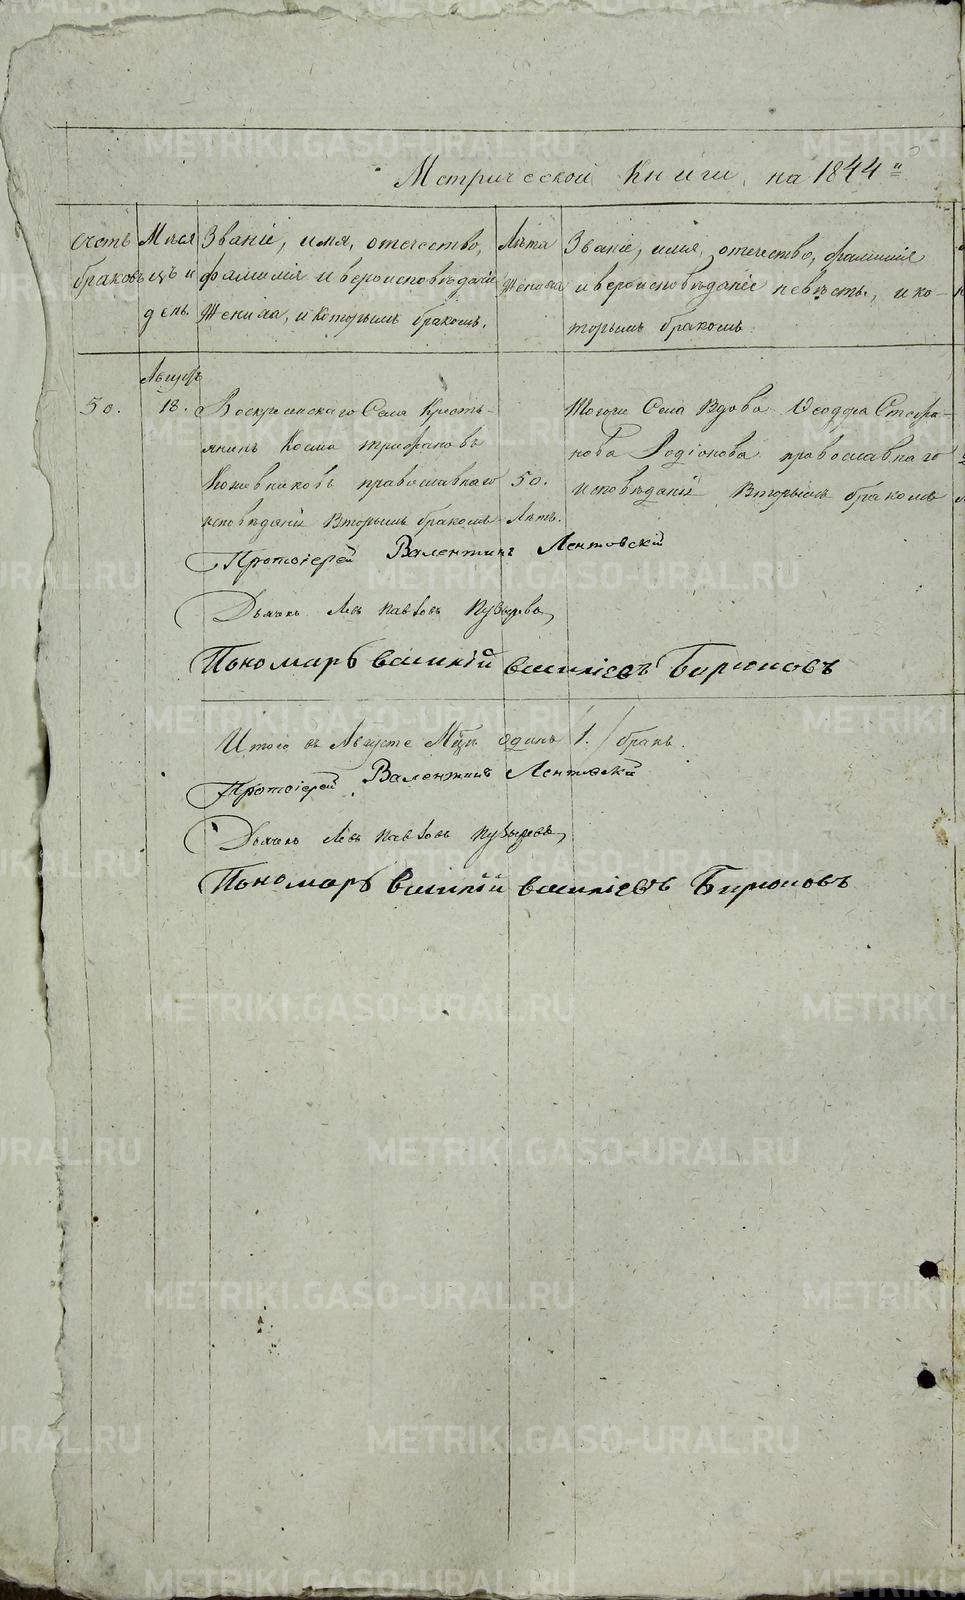 Метрической Книги, на 1844й
Счетъ браковъ
Месяцъ и день.
Званіе, имя, отечество,
фамилія и вероисповѣданіе
жениха, и которымъ бракомъ.
Лѣта
жениха
Званіе, имя, отечество, фамилія
и вероисповѣданіе невѣсты, и ко-
торымъ бракомъ.
Августъ
50.
18.
Воскресенскаго Села Кресть-
янинъ Косма
Кожевниковъ православнаго
исповѣданія Вторымъ бракомъ
50.
Лѣтъ.
Тогоже Села Вдова Ѳеодора Стефа-
нова Родіонова православнаго
исповѣданія Вторымъ бракомъ
Протоіерей Валентинъ Лентовскій
Дьячекъ Левъ Павловъ
Пономарь Василій Василіевъ Бирюковъ
Итого въ Августе Мцѣ одинъ /1./ бракъ.
Протоіерей Валентинъ Лентовскій
Дьячекъ Левъ Павловъ
Пономарь Василій Василіевъ Бирюковъ
METRIKI.GASO-URAL.RU